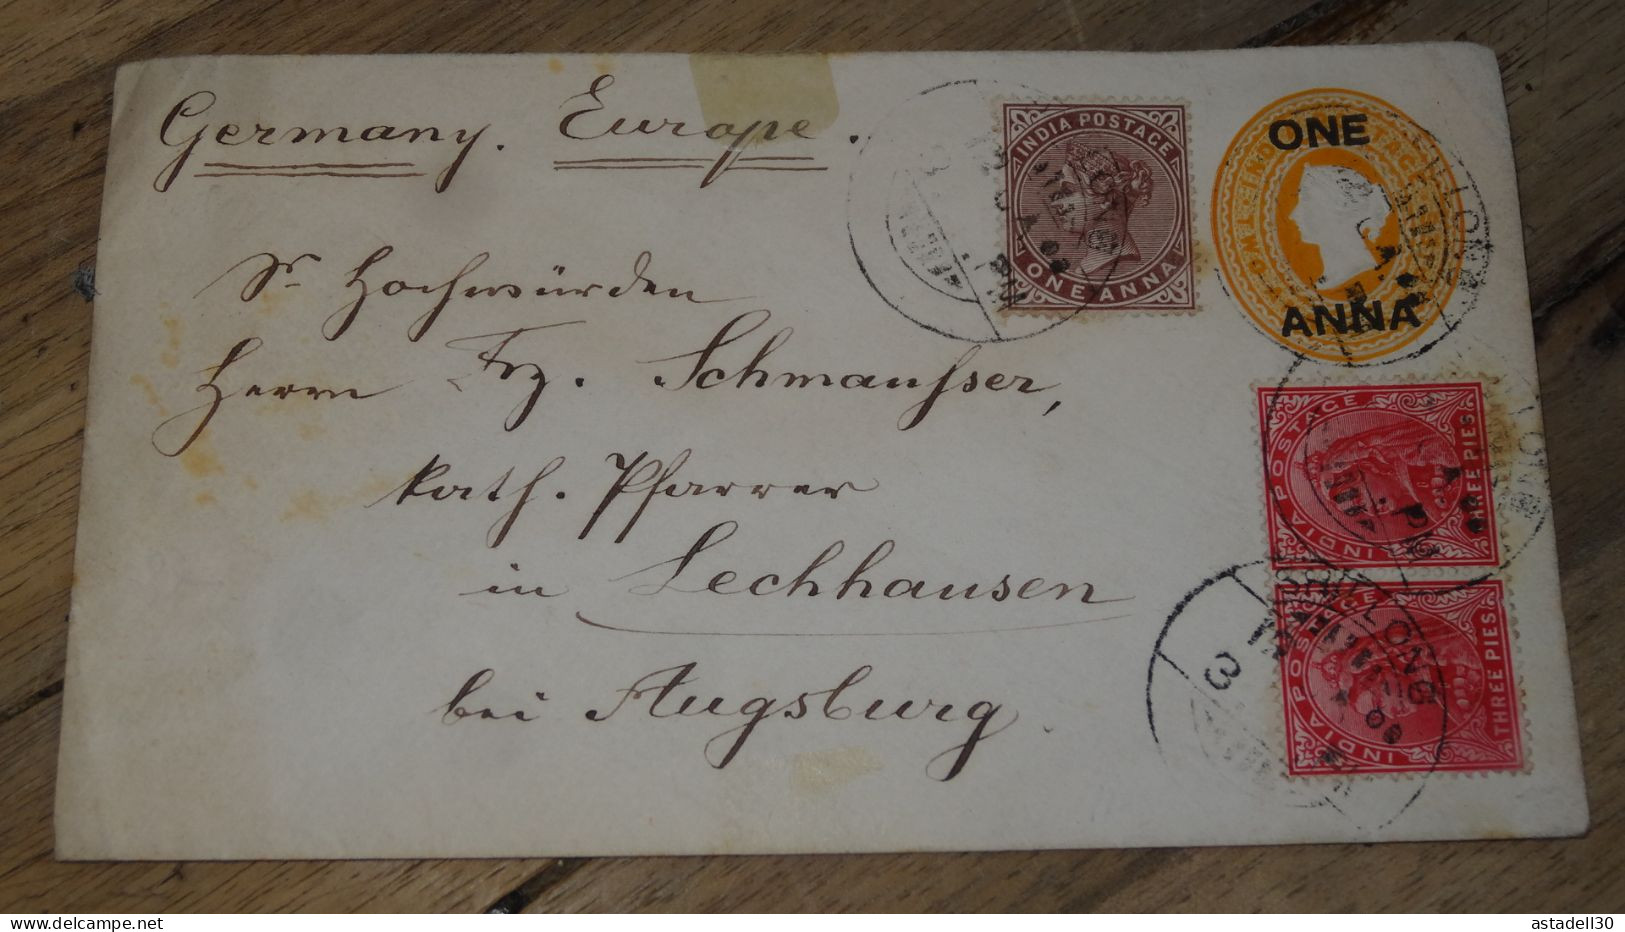 Germany. Europe.
INDIA POSTAGE
ONE ANNA
ONE
ANNA
Sr. Hochwürden
Herrn Frz. Schmausser,
kath. Pfarrer
in Lechhausen
bei Augsburg
INDIA POSTAGE
THREE PIES
INDIA POSTAGE
THREE PIES
SHILLONG
delcampe.net
astadell30